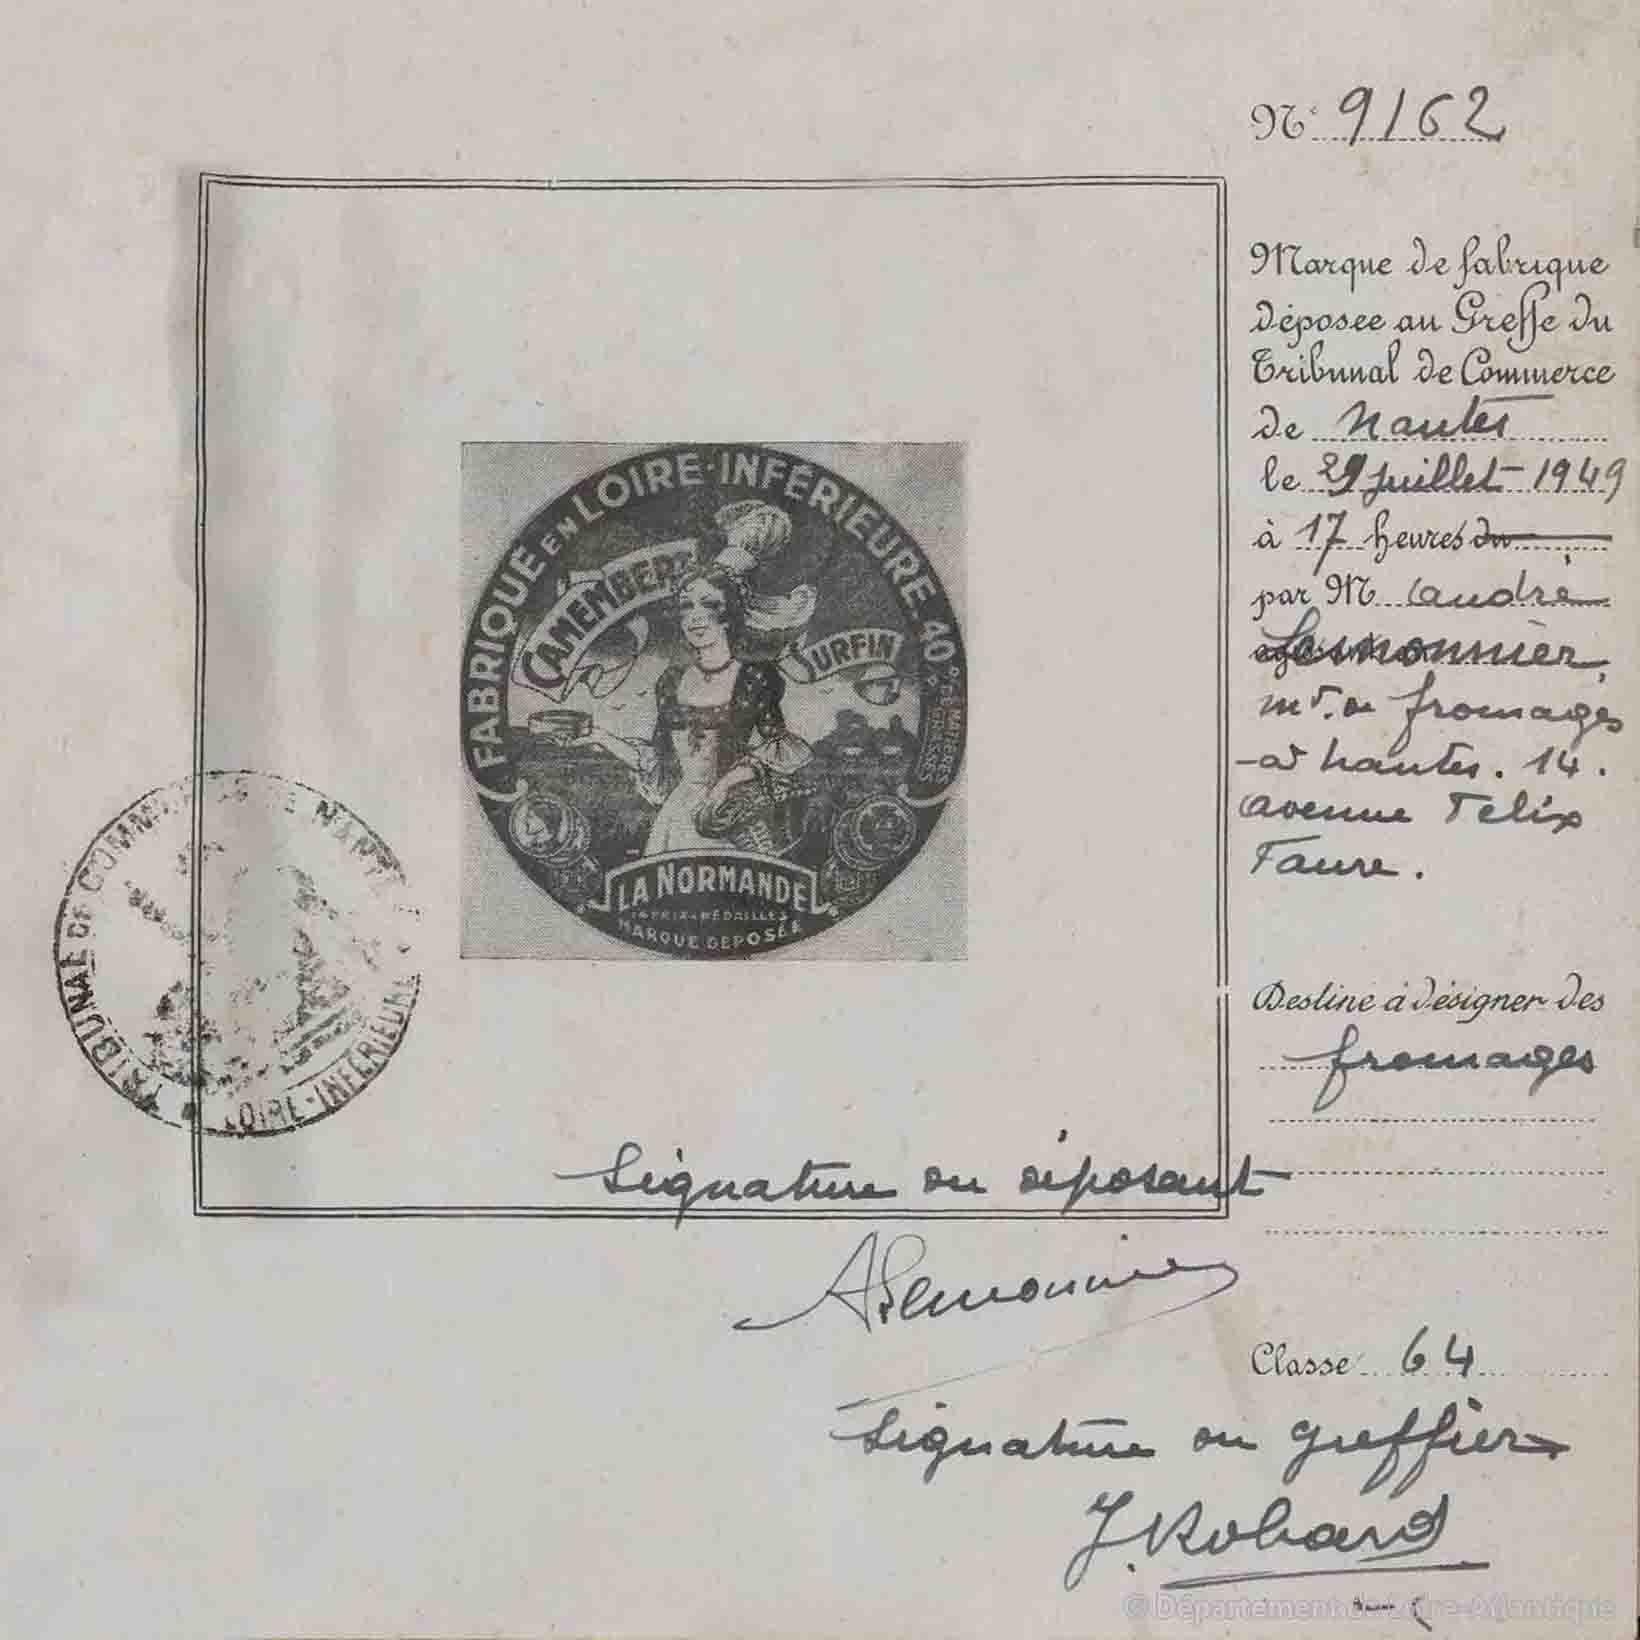 N° 9162
Marque de fabrique
déposée au Greffe du
Tribunal de Commerce
de Nantes
le 29 juillet 1949
à 17 heures du
par M André
Lemonnier,
md. de fromages
à Nantes. 14.
avenue Felix
Faure.
Destiné à désigner des
fromages
Classe 64
FABRIQUÉ EN LOIRE-INFÉRIEURE 40% DE MATIÈRES GRASSES
CAMEMBERT
SURFIN
LA NORMANDE
PRIX MÉDAILLES
MARQUE DÉPOSÉE
TRIBUNAL DE COMMERCE DE NANTES
LOIRE-INFÉRIEURE
Signature du déposant
A Lemonnier
Signature du greffier
J. Robard
© Département de Loire-Atlantique